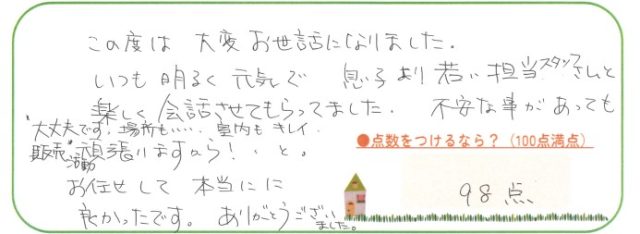 この度は 大変 お世話になりました。
いつも 明るく 元気で 息子より 若い 担当スタッフさんと
楽しく 会話させてもらってました。 不安な事があっても
"大丈夫です。場所も・・・、室内も キレイ、
販売活動 頑張いますから!" と。
お任せして 本当にに
良かったです。 ありがとうございました。
●点数をつけるなら?(100点満点)
98点